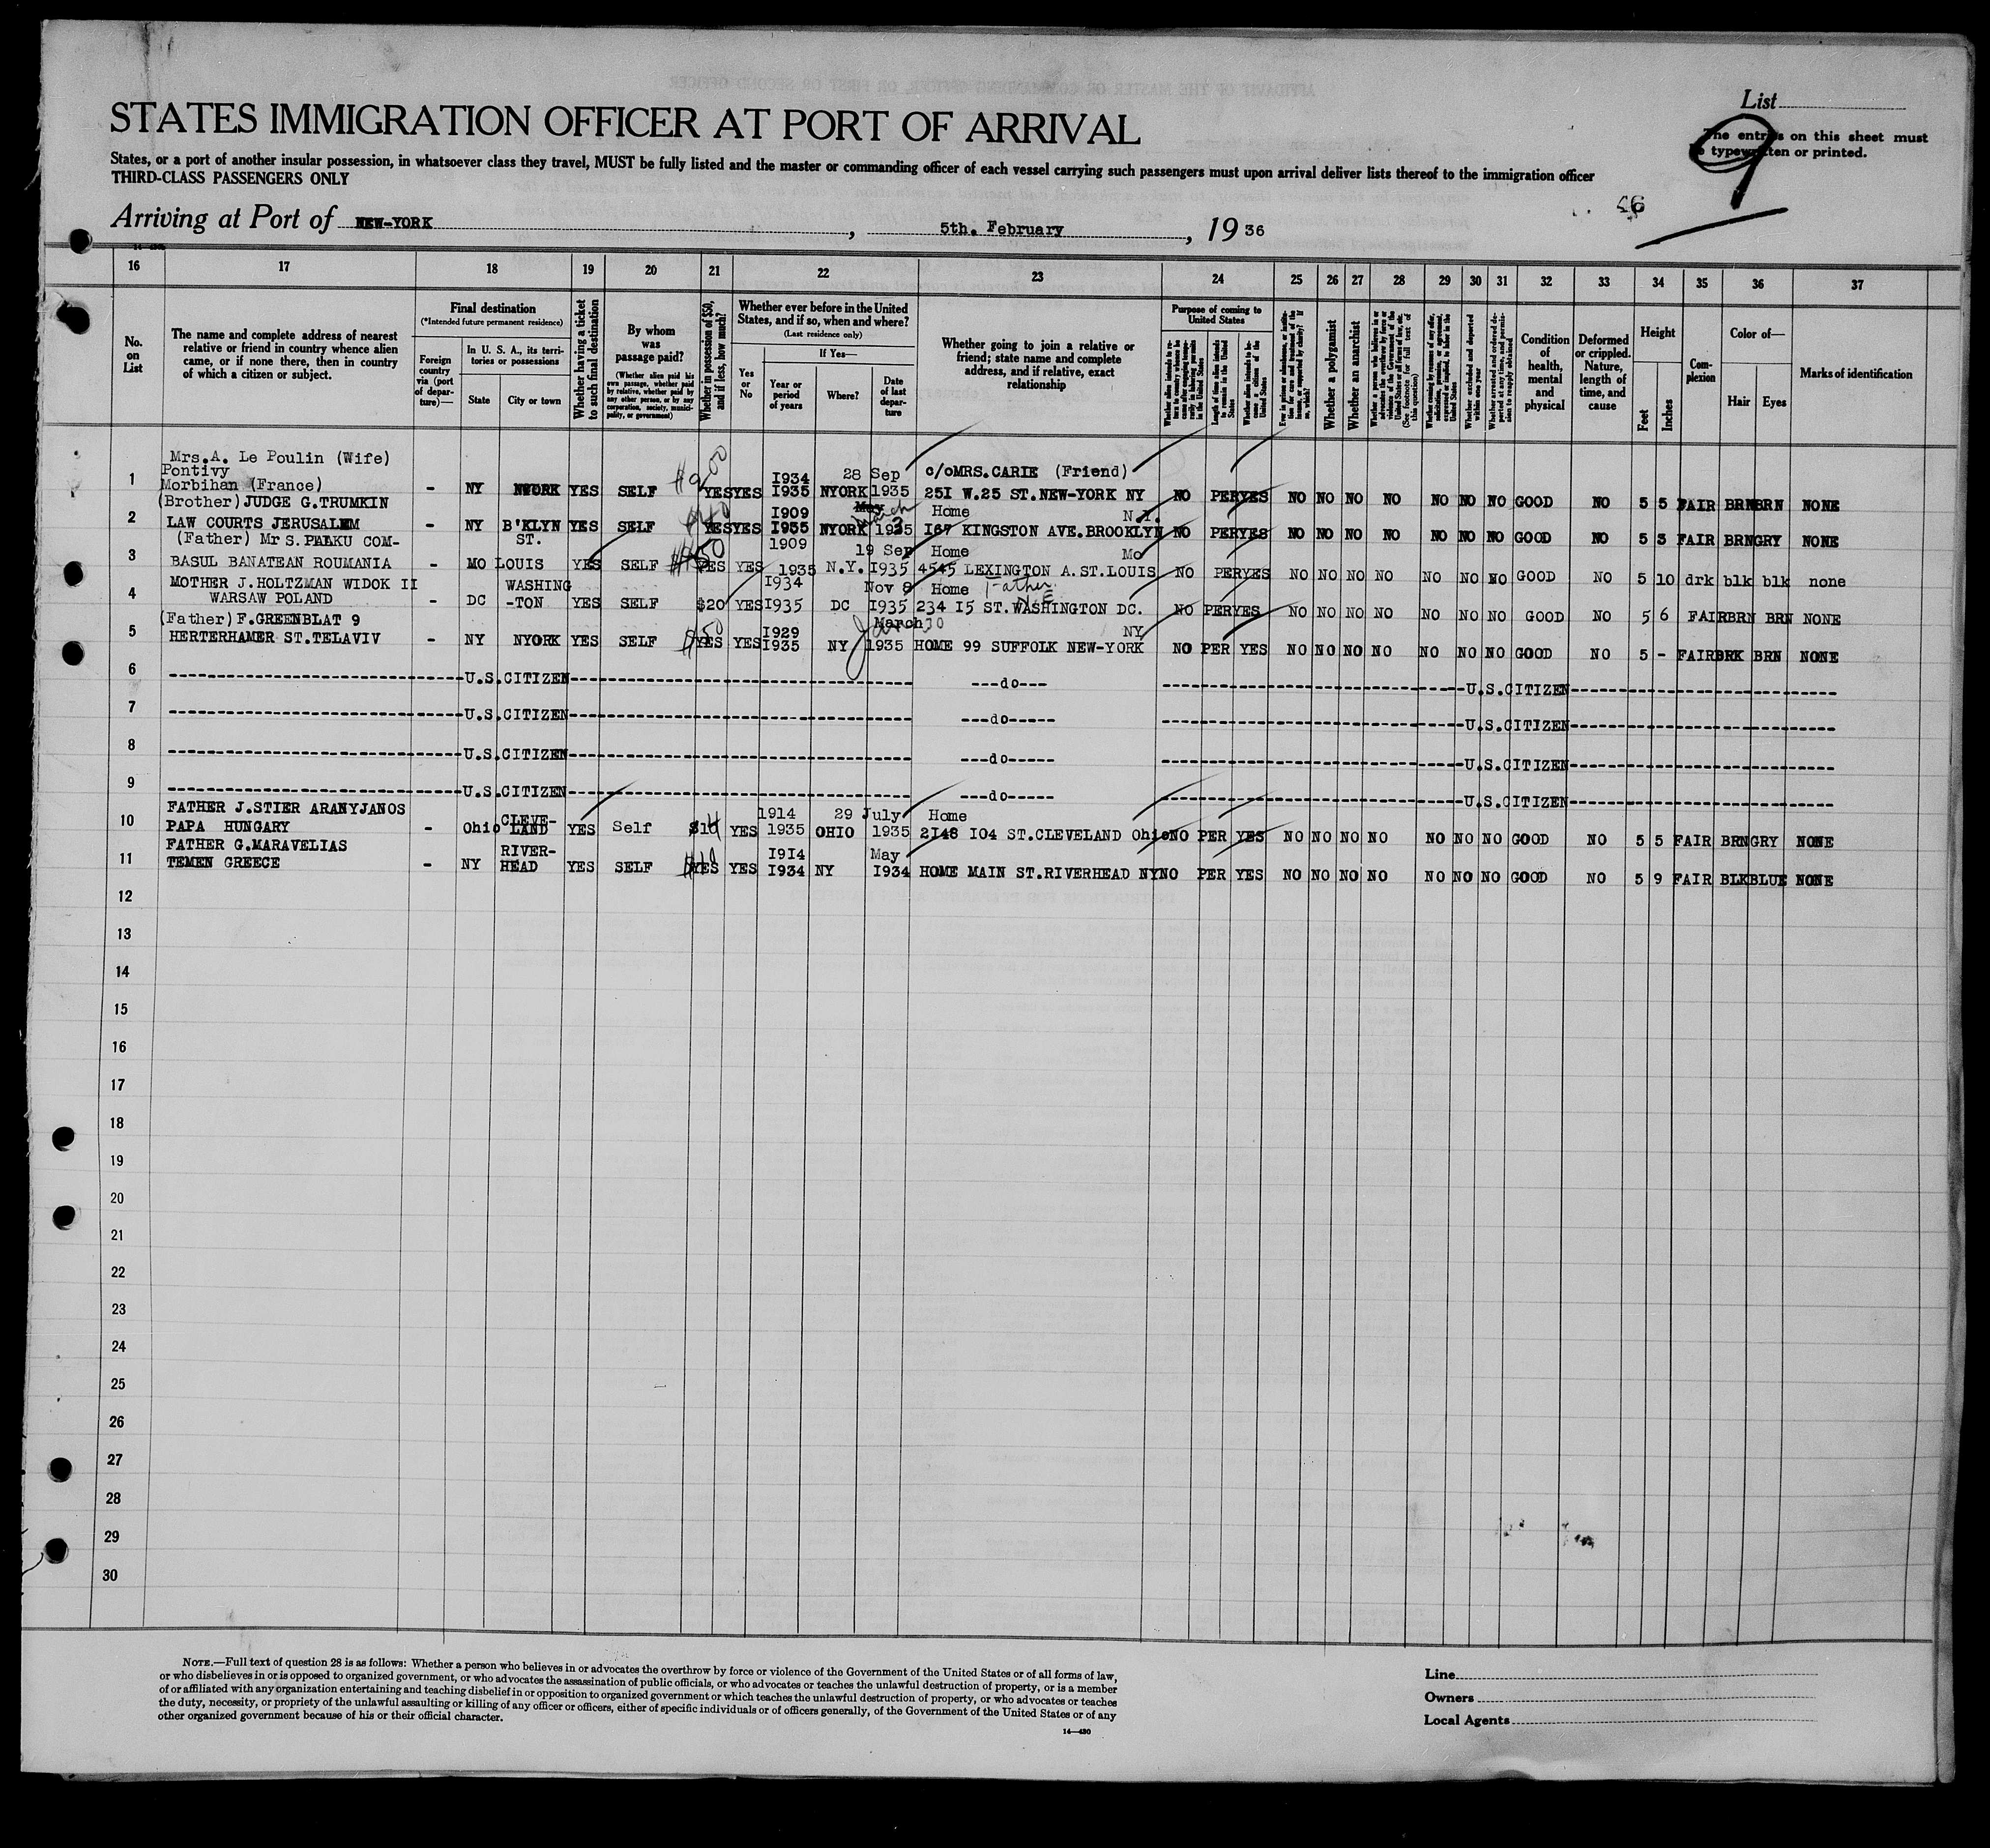 List
STATES IMMIGRATION OFFICER AT PORT OF ARRIVAL
The entries on this sheet must
be typewritten or printed.
9
States, or a port of another insular possession, in whatsoever class they travel, MUST be fully listed and the master or commanding officer of each vessel carrying such passengers must upon arrival deliver lists thereof to the immigration officer
THIRD-CLASS PASSENGERS ONLY
Arriving at Port of NEW-YORK, 5th. February, 1936
16 17 18 19 20 21 22 23 24 25 26 27 28 29 30 31 32 33 34 35 36 37
No. on List
The name and complete address of nearest relative or friend in country whence alien came, or if none there, then in country of which a citizen or subject.
Final destination
(*Intended future permanent residence)
Foreign country via (port of departure)—
In U. S. A., its territories or possessions
State
City or town
Whether having a ticket to such final destination
By whom was passage paid?
(Whether alien paid his own passage, whether paid by relative, whether paid by any other person, or by any corporation, society, municipality, or government)
Whether in possession of $50, and if less, how much?
Whether ever before in the United States, and if so, when and where?
(Last residence only)
Yes or No
If Yes—
Year or period of years
Where?
Date of last departure
Whether going to join a relative or friend; state name and complete address, and if relative, exact relationship
Purpose of coming to United States
Length of time alien intends to remain in the United States
Whether alien intends to become a citizen of the United States
Whether a polygamist
Whether an anarchist
Condition of health, mental and physical
Deformed or crippled. Nature, length of time, and cause
Height
Feet
Inches
Complexion
Color of—
Hair
Eyes
Marks of identification
Mrs.A. Le Poulin (Wife)
Pontivy 1934 28 Sep c/oMRS.CARIE (Friend)
1 Morbihan (France) - NY NYORK YES SELF $200 YES YES 1935 NYORK 1935 251 W.25 ST.NEW-YORK NY NO PER YES NO NO NO NO NO NO NO GOOD NO 5 5 FAIR BRN BRN NONE
(Brother) JUDGE G.TRUMKIN I909 May March Home N.Y.
2 LAW COURTS JERUSALEM - NY B'KLYN YES SELF YES YES 1935 NYORK 1935 I67 KINGSTON AVE.BROOKLYN NO PER YES NO NO NO NO NO NO NO GOOD NO 5 3 FAIR BRN GRY NONE
(Father) Mr S.PALKU COM- ST. 1909 19 Sep Home Mo
3 BASUL BANATEAN ROUMANIA - MO LOUIS YES SELF YES YES 1935 N.Y. I935 4545 LEXINGTON A.ST.LOUIS NO PER YES NO NO NO NO NO NO NO GOOD NO 5 10 drk blk blk none
MOTHER J.HOLTZMAN WIDOK II WASHING I934 Nov 8 Home Father
4 WARSAW POLAND - DC -TON YES SELF $20 YES I935 DC I935 234 I5 ST.WASHINGTON DC. N.E NO PER YES NO NO NO NO NO NO NO GOOD NO 5 6 FAIR BRN BRN NONE
(Father) F.GREENBLAT 9 I929 March 30 NY
5 HERTERHAMER ST.TELAVIV - NY NYORK YES SELF $50 YES YES I935 NY 1935 HOME 99 SUFFOLK NEW-YORK NO PER YES NO NO NO NO NO NO NO GOOD NO 5 - FAIR BRK BRN NONE
6 ----------U.S.CITIZEN---------- ---do--- ----------U.S.CITIZEN----------
7 ----------U.S.CITIZEN---------- ---do----- ----------U.S.CITIZEN----------
8 ----------U.S.CITIZEN---------- ---do----- ----------U.S.CITIZEN----------
9 ----------U.S.CITIZEN---------- ---do----- ----------U.S.CITIZEN----------
FATHER J.STIER ARANYJANOS CLEVE- 1914 29 July Home
10 PAPA HUNGARY - Ohio LAND YES Self YES 1935 OHIO 1935 2I48 I04 ST.CLEVELAND Ohio NO PER YES NO NO NO NO NO NO NO GOOD NO 5 5 FAIR BRN GRY NONE
FATHER G.MARAVELIAS RIVER- I9I4 May
11 TEMEN GREECE - NY HEAD YES SELF YES YES I934 NY I934 HOME MAIN ST.RIVERHEAD NY NO PER YES NO NO NO NO NO NO NO GOOD NO 5 9 FAIR BLK BLUE NONE
12
13
14
15
16
17
18
19
20
21
22
23
24
25
26
27
28
29
30
NOTE.—Full text of question 28 is as follows: Whether a person who believes in or advocates the overthrow by force or violence of the Government of the United States or of all forms of law,
or who disbelieves in or is opposed to organized government, or who advocates the assassination of public officials, or who advocates or teaches the unlawful destruction of property, or is a member
of or affiliated with any organization entertaining and teaching disbelief in or opposition to organized government or which teaches the unlawful destruction of property, or who advocates or teaches
the duty, necessity, or propriety of the unlawful assaulting or killing of any officer or officers, either of specific individuals or of officers generally, of the Government of the United States or of any
other organized government because of his or their official character.
14—430
Line
Owners
Local Agents